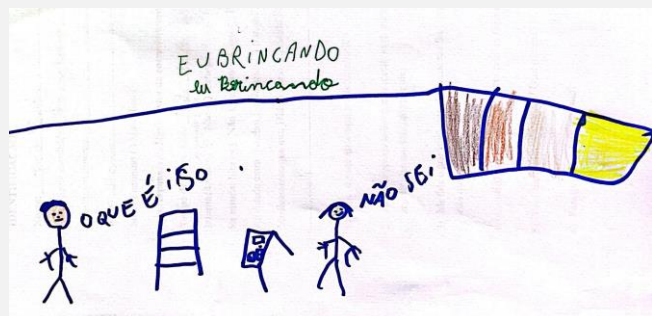 EU BRINCANDO
eu Brincando
O QUE É ISO
NÃO SEI